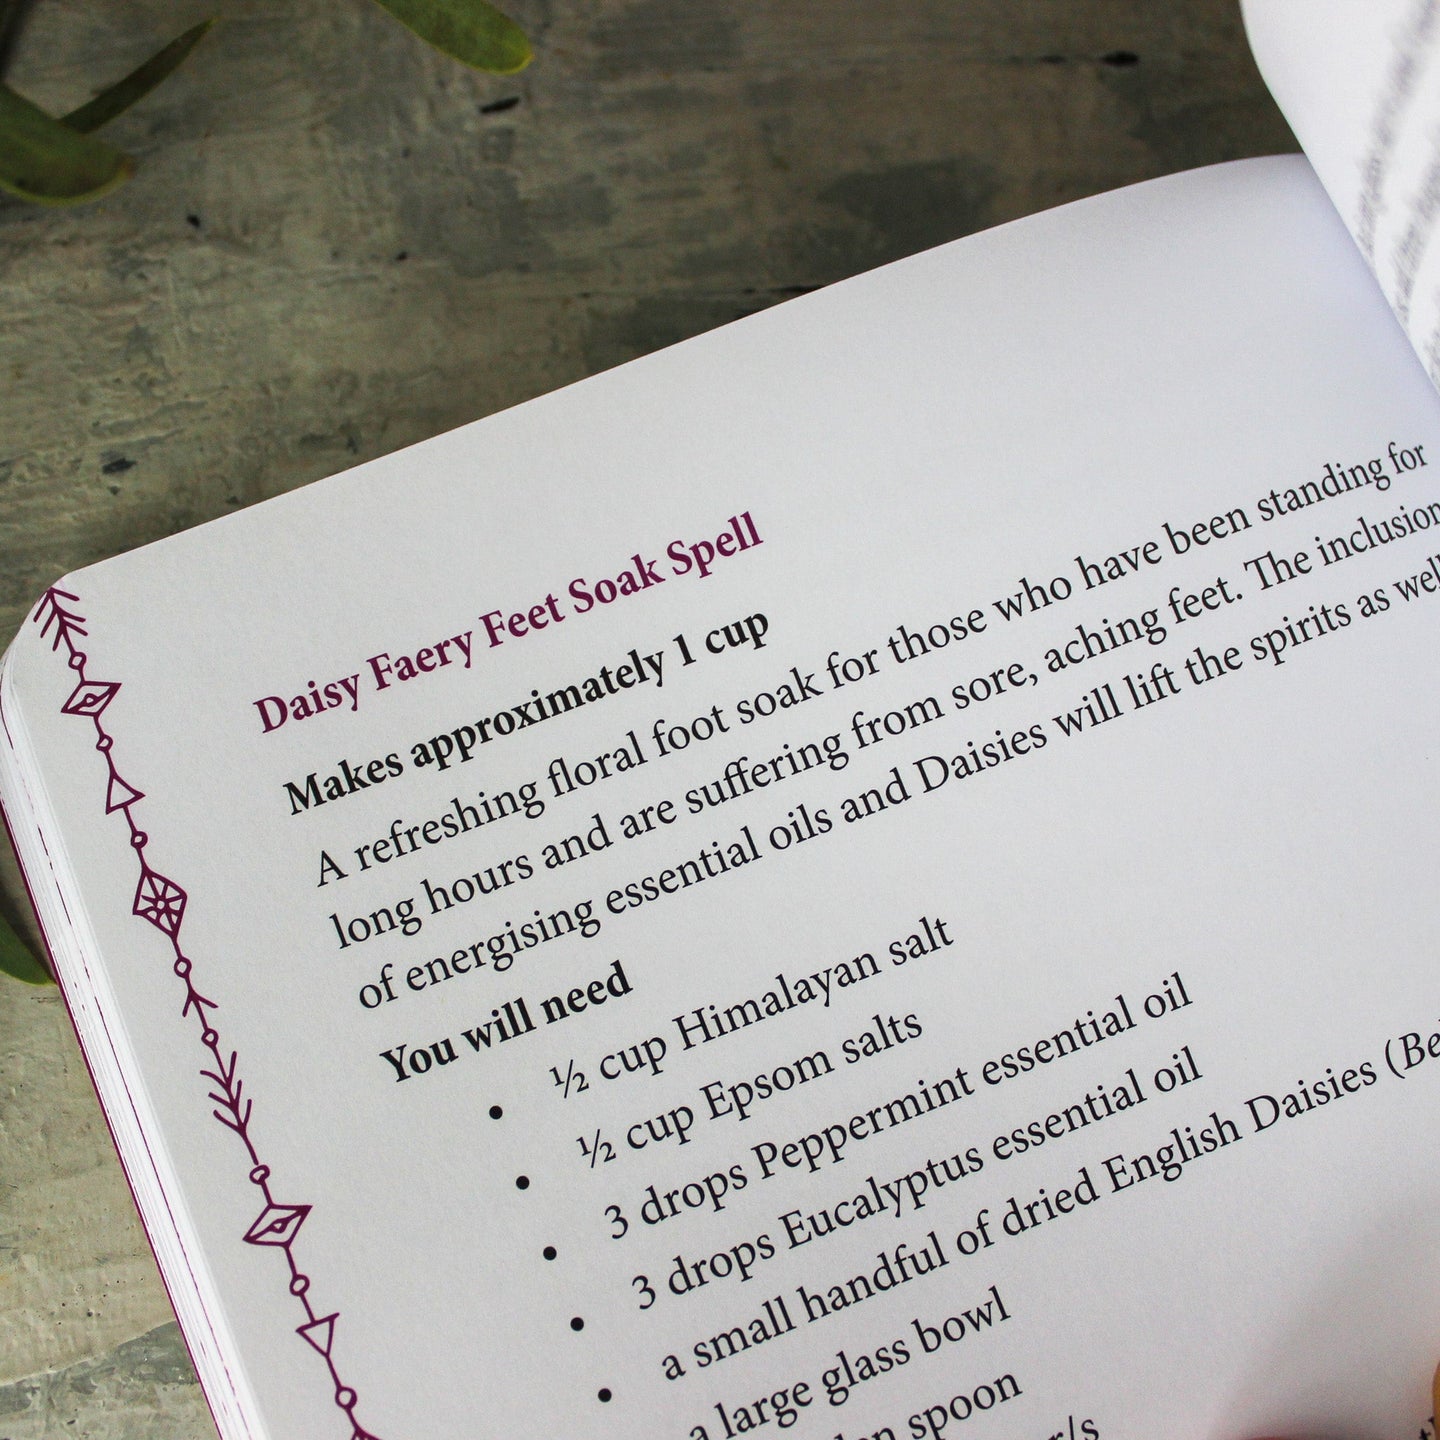 Daisy Faery Feet Soak Spell
Makes approximately 1 cup
A refreshing floral foot soak for those who have been standing for
long hours and are suffering from sore, aching feet. The inclusion
of energising essential oils and Daisies will lift the spirits as well
You will need
• ½ cup Himalayan salt
• ½ cup Epsom salts
• 3 drops Peppermint essential oil
• 3 drops Eucalyptus essential oil
• a small handful of dried English Daisies (
a large glass bowl
spoon